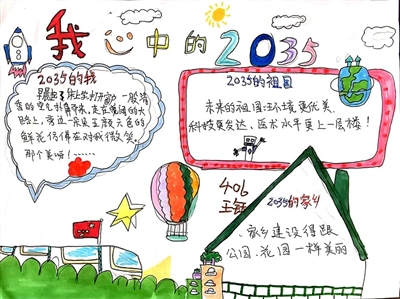 我心中的2035
8
2035的我
早晨起床打开窗,一股清
香的空气扑鼻而来,走在宽阔的大
路上,旁边一朵朵五颜六色的
鲜花仿佛在对我微笑,
那个美呀!……
2035的祖国
未来的祖国环境更优美,
科技更发达、医术水平更上一层楼!
406
王钰
2035的家乡
家乡建设得跟
公园、花园一样美丽